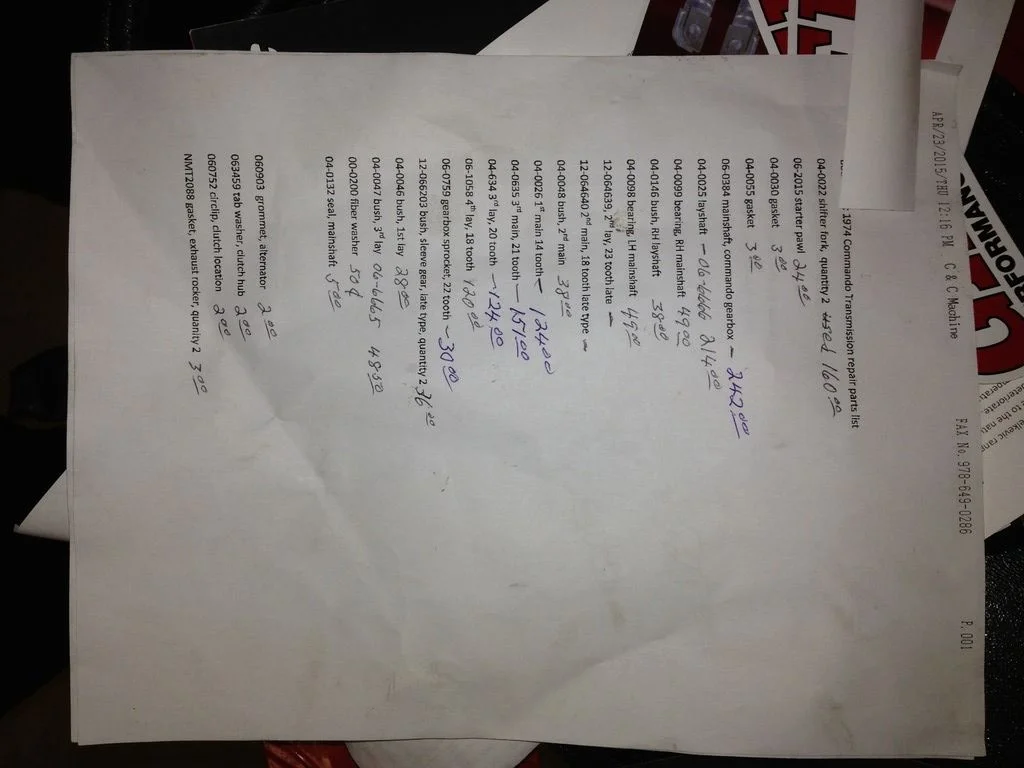 APR/23/2015/THU 12:16 PM C & C Machine FAX No. 978-649-0286 P. 001
1974 Commando Transmission repair parts list
04-0022 shifter fork, quantity 2 used 160.00
06-2015 starter pawl 24.00
04-0030 gasket 3.00
04-0055 gasket 3.00
06-0384 mainshaft, commando gearbox - 242.00
04-0025 layshaft - 06-6666 214.00
04-0099 bearing, RH mainshaft 49.00
04-0146 bush, RH layshaft 38.00
04-0098 bearing, LH mainshaft 49.00
12-064639, 2nd lay, 23 tooth late -
12-064640 2nd main, 18 tooth late type -
04-0048 bush, 2nd main 38.00
04-0026 1st main 14 tooth - 124.00
04-0635 3rd main, 21 tooth - 151.00
04-634 3rd lay, 20 tooth - 124.00
06-1058 4th lay, 18 tooth 120.00
06-0759 gearbox sprocket, 22 tooth - 30.00
12-066203 bush, sleeve gear, late type, quantity 2 36.00
04-0046 bush, 1st lay 28.00
04-0047 bush, 3rd lay 06-6665 48.50
00-0200 fiber washer 50¢
04-0132 seal, mainshaft 5.00
060903 grommet, alternator 2.00
063459 tab washer, clutch hub 2.00
060752 circlip, clutch location 2.00
NMT2088 gasket, exhaust rocker, quanity 2 3.00